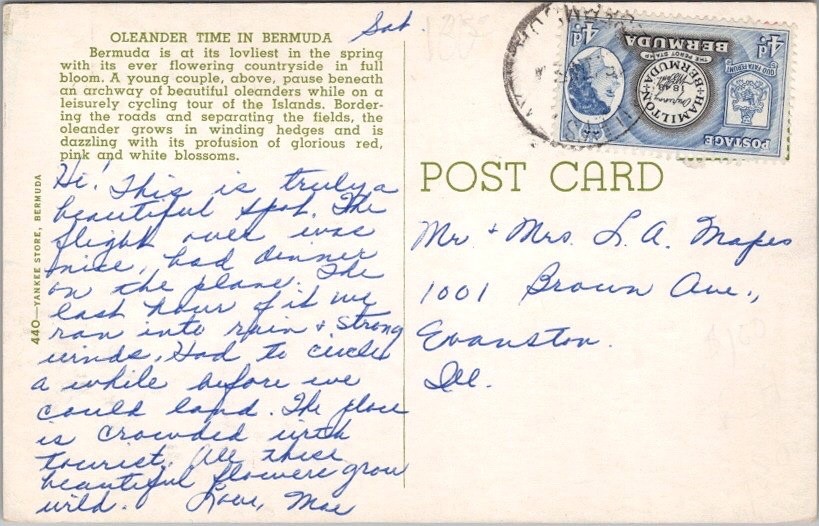 OLEANDER TIME IN BERMUDA
Bermuda is at its lovliest in the spring
with its ever flowering countryside in full
bloom. A young couple, above, pause beneath
an archway of beautiful oleanders while on a
leisurely cycling tour of the Islands. Border-
ing the roads and separating the fields, the
oleander grows in winding hedges and is
dazzling with its profusion of glorious red,
pink and white blossoms.
440—YANKEE STORE, BERMUDA
Sat.
Hi! This is truly a
beautiful spot. The
flight over was
nice, had dinner
on the plane. The
last hour of it we
ran into rain & strong
winds. Had to circle
a while before we
could land. The place
is crowded with
tourist. All these
beautiful flowers grow
wild. Love, Mae
POST CARD
Mr. & Mrs. L. A. Mapes
1001 Brown Ave.,
Evanston.
Ill.
POSTAGE
HAMILTON
BERMUDA
1848
THE PEROT STAMP
BERMUDA
4d
4d